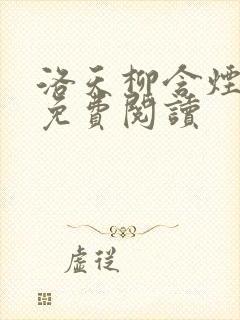 洛天柳含煙
免費閱讀
虛從